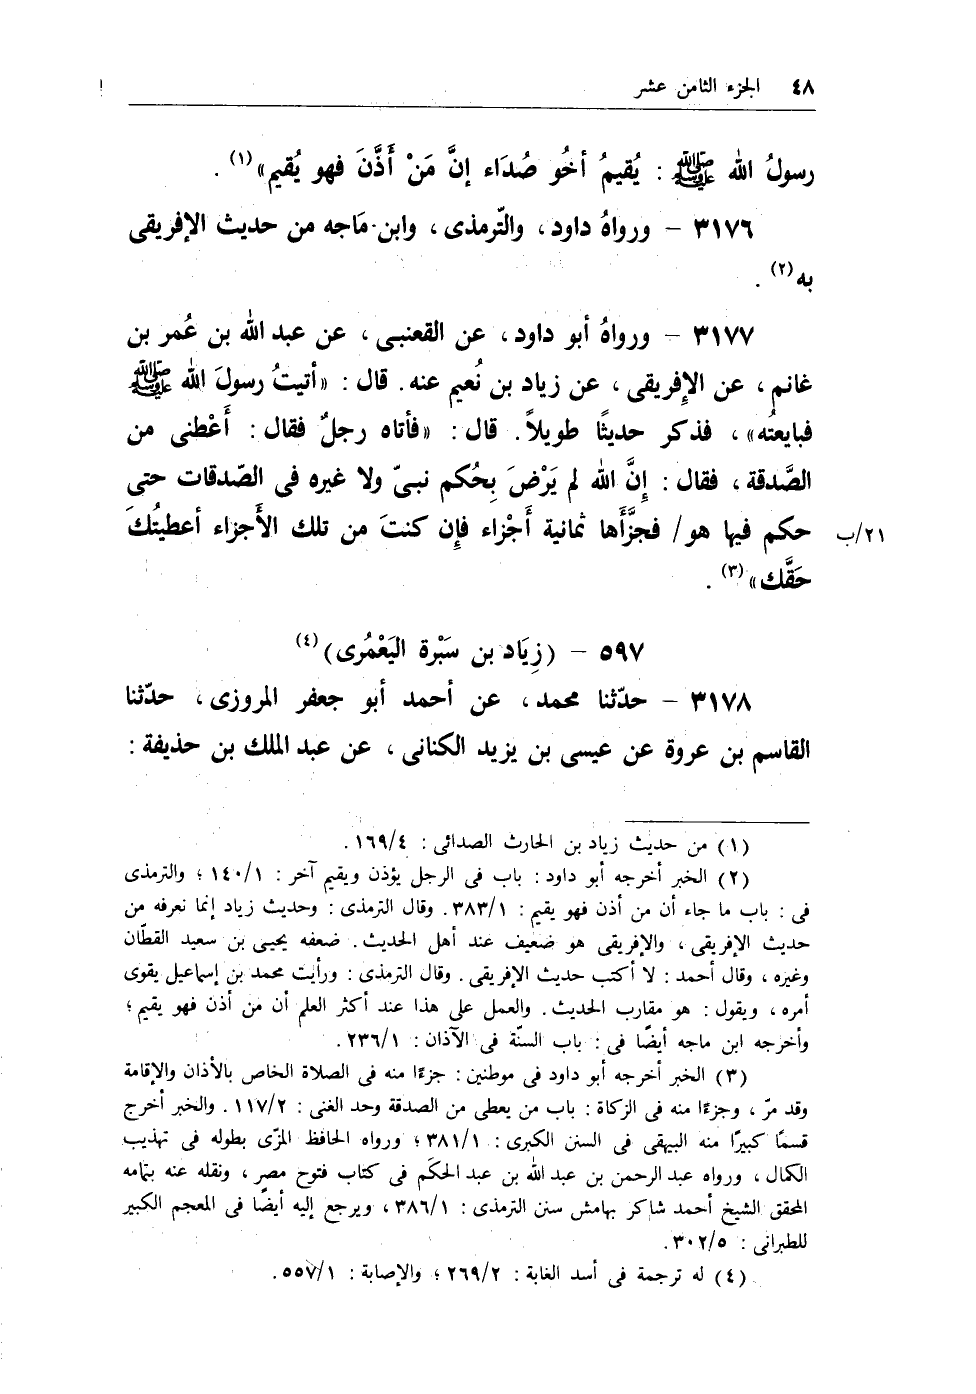 ٤٨ الجزء الثامن عشر
رسولُ الله ﷺ : يُقيمُ أخُو صُدَاء إنَّ مَنْ أَذَّنَ فهو يُقيم» (١) .
٣١٧٦ – ورواهُ داود ، والتّرمذى ، وابن مَاجه من حديث الإفريقى
به (٢) .
٣١٧٧ – ورواهُ أبو داود ، عن القعنبى ، عن عبد الله بن عُمر بن
غانم ، عن الإفريقى ، عن زياد بن نُعيم عنه . قال : «أتيتُ رسولَ الله ﷺ
فبايعتُه» ، فذكر حديثًا طويلاً . قال : «فأتاه رجلٌ فقال : أَعْطنى من
الصَّدقة ، فقال : إِنَّ الله لم يَرْضَ بِحُكم نبىّ ولا غيره فى الصّدقات حتى
حكم فيها هو / فجزَّأَها ثمانية أَجْزاء فإِن كنتَ من تلك الأَجزاء أعطيتُكَ
٢١/ب
حَقَّك» (٣) .
٥٩٧ – (زِيَاد بن سَبْرة اليَعْمُرى) (٤)
٣١٧٨ – حدّثنا محمد ، عن أحمد أبو جعفر المروزى ، حدّثنا
القاسم بن عروة عن عيسى بن يزيد الكنانى ، عن عبد الملك بن حذيفة :
(١) من حديث زياد بن الحارث الصدائى : ١٦٩/٤ .
(٢) الخبر أخرجه أبو داود : باب فى الرجل يؤذن ويقيم آخر : ١٤٠/١ ؛ والترمذى
فى : باب ما جاء أن من أذن فهو يقيم : ٣٨٣/١ . وقال الترمذى : وحديث زياد إنما نعرفه من
حديث الإفريقى ، والإفريقى هو ضعيف عند أهل الحديث . ضعفه يحيى بن سعيد القطان
وغيره ، وقال أحمد : لا أكتب حديث الإفريقى . وقال الترمذى : ورأيت محمد بن إسماعيل يقوى
أمره ، ويقول : هو مقارب الحديث . والعمل على هذا عند أكثر العلم أن من أذن فهو يقيم ؛
وأخرجه ابن ماجه أيضًا فى : باب السنّة فى الآذان : ٢٣٦/١ .
(٣) الخبر أخرجه أبو داود فى موطنين : جزءًا منه فى الصلاة الخاص بالأذان والإقامة
وقد مرّ ، وجزءًا منه فى الزكاة : باب من يعطى من الصدقة وحد الغنى : ١١٧/٢ . والخبر أخرج
قسمًا كبيرًا منه البيهقى فى السنن الكبرى : ٣٨١/١ ؛ ورواه الحافظ المزّى بطوله فى تهذيب
الكمال ، ورواه عبد الرحمن بن عبد الله بن عبد الحكَم فى كتاب فتوح مصر ، ونقله عنه بتمامه
المحقق الشيخ أحمد شاكر بهامش سنن الترمذى : ٣٨٦/١ ، ويرجع إليه أيضًا فى المعجم الكبير
للطبرانى : ٣٠٢/٥ .
(٤) له ترجمة فى أسد الغابة : ٢٦٩/٢ ؛ والإصابة : ٥٥٧/١ .